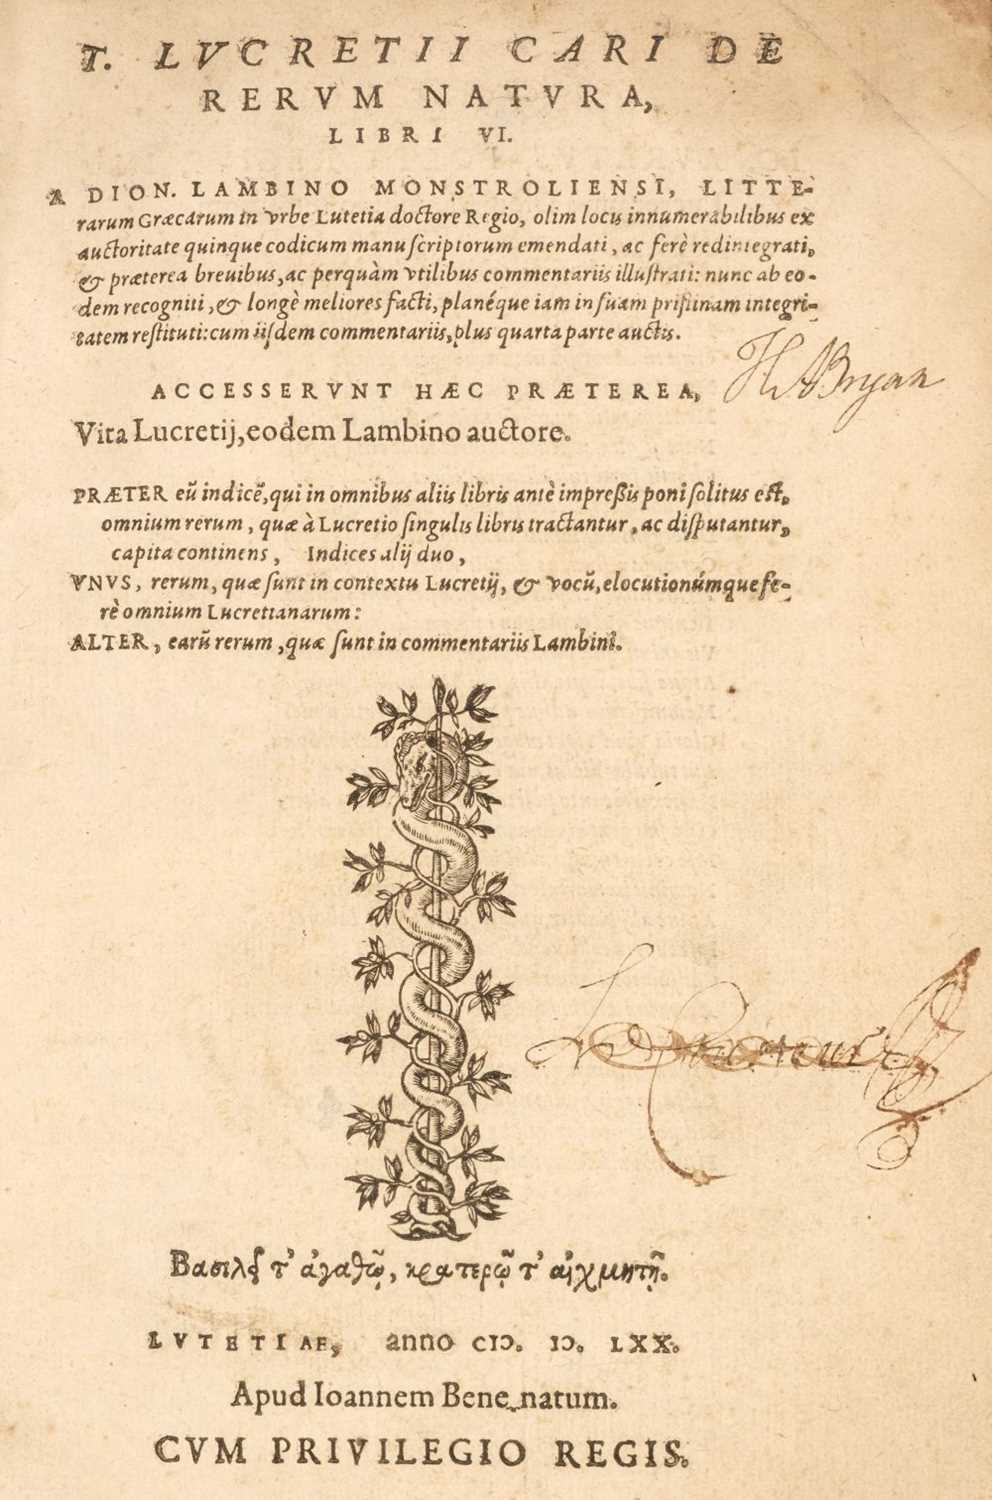 T. LVCRETII CARI DE
RERVM NATVRA,
LIBRI VI.
A DION. LAMBINO MONSTROLIENSI, LITTE-
rarum Græcarum in vrbe Lutetia doctore Regio, olim locis innumerabilibus ex
auctoritate quinque codicum manu scriptorum emendati, ac ferè redintegrati,
& præterea breuibus, ac perquàm vtilibus commentariis illustrati: nunc ab eo-
dem recogniti, & longè meliores facti, planéque iam in suam pristinam integri-
tatem restituti: cum iisdem commentariis, plus quarta parte auctis.
HABryan
ACCESSERVNT HÆC PRÆTEREA,
Vita Lucretij, eodem Lambino auctore.
PRÆTER eũ indicẽ, qui in omnibus aliis libris antè impreßis poni solitus est,
omnium rerum, quæ à Lucretio singulis libris tractantur, ac disputantur,
capita continens, Indices alij duo,
VNVS, rerum, quæ sunt in contextu Lucretij, & vocũ, elocutionúmque fe-
rè omnium Lucretianarum:
ALTER, earũ rerum, quæ sunt in commentariis Lambini.
Βασιλεῖ τ' ἀγαθῷ, κρατερῷ τ' αἰχμητῇ.
LVTETIAE, anno CIↃ. IↃ. LXX.
Apud Ioannem Benenatum.
CVM PRIVILEGIO REGIS.